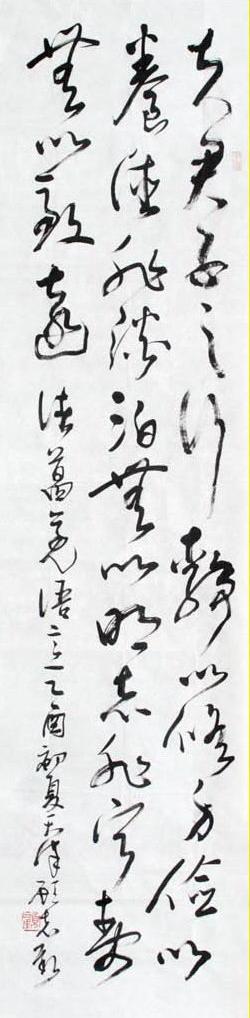 夫君子之行靜以修身儉以
養德非澹泊無以明志非寧靜
無以致遠 諸葛亮語 乙酉初夏天津顧志新